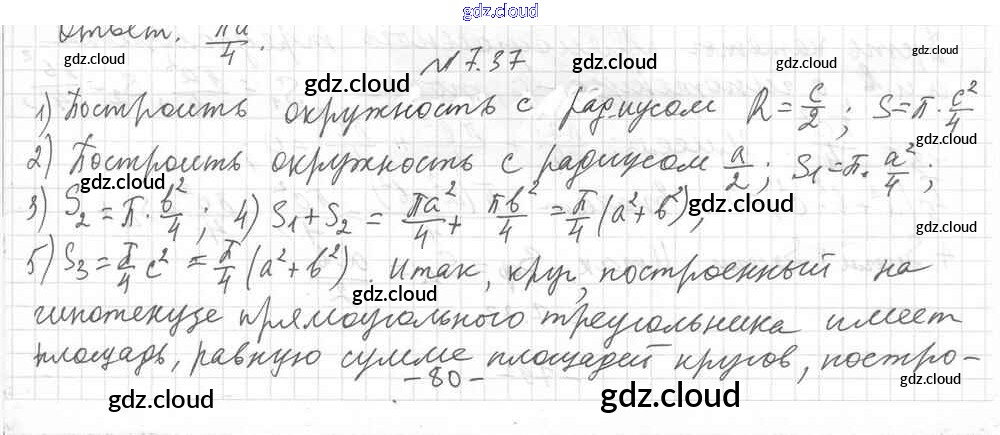 gdz.cloud
Ответ. πa/4.
gdz.cloud
N 7.37
gdz.cloud gdz.cloud
1) Построить окружность с радиусом R = c/2 ; S = π · c²/4
gdz.cloud
gdz.cloud
2) Построить окружность с радиусом a/2 ; S₁ = π · a²/4 ;
gdz.cloud gdz.cloud
3) S₂ = π · b²/4 ; 4) S₁ + S₂ = πa²/4 + πb²/4 = π/4 (a² + b²) ;
gdz.cloud gdz.cloud
5) S₃ = π/4 c² = π/4 (a² + b²) . Итак, круг, построенный на
gdz.cloud
гипотенузе прямоугольного треугольника имеет
gdz.cloud gdz.cloud
площадь, равную сумме площадей кругов, постро-
-80-
gdz.cloud
gdz.cloud gdz.cloud